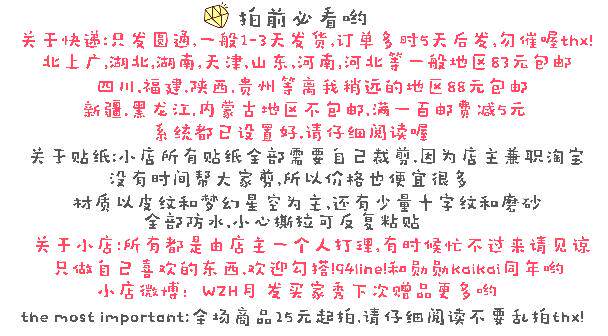 拍前必看哟
关于快递:只发圆通,一般1-3天发货,订单多时5天后发,勿催喔thx!
北上广,湖北,湖南,天津,山东,河南,河北等一般地区83元包邮
四川,福建,陕西,贵州等离我稍远的地区88元包邮
新疆,黑龙江,内蒙古地区不包邮,满一百邮费减5元
系统都已设置好,请仔细阅读喔
关于贴纸:小店所有贴纸全部需要自己裁剪,因为店主兼职淘宝
没有时间帮大家剪,所以价格也便宜很多
材质以皮纹和梦幻星空为主,还有少量十字纹和磨砂
全部防水,小心撕拉可反复粘贴
关于小店:所有都是由店主一个人打理,有时候忙不过来请见谅
只做自己喜欢的东西,欢迎勾搭!94line!和勋勋kaikai同年哟
小店微博: WZH月 发买家秀下次赠品更多哟
the most important:全场商品25元起拍,请仔细阅读不要乱拍thx!